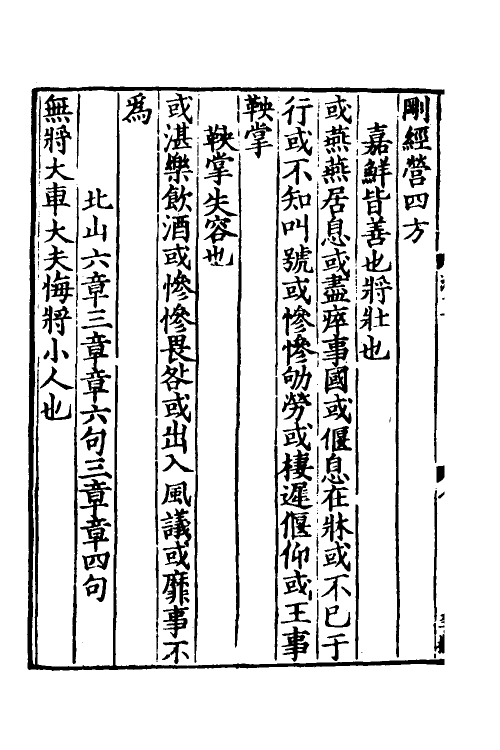 剛經營四方
嘉鮮皆善也將壯也
或燕燕居息或盡瘁事國或偃息在牀或不已于
行或不知叫號或慘慘劬勞或棲遲偃仰或王事
鞅掌
鞅掌失容也
或湛樂飲酒或慘慘畏咎或出入風議或靡事不
爲
北山六章三章章六句三章章四句
無將大車大夫悔將小人也